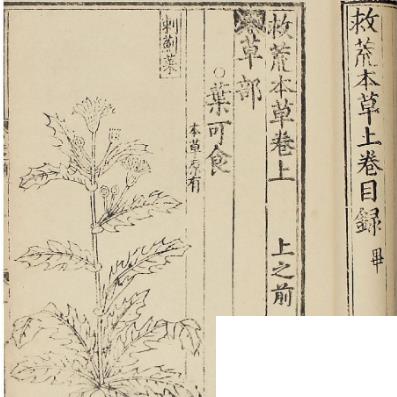 救荒本草上卷目録 畢
救荒本草卷上 上之前
草部
○葉可食
本草原有
刺薊菜